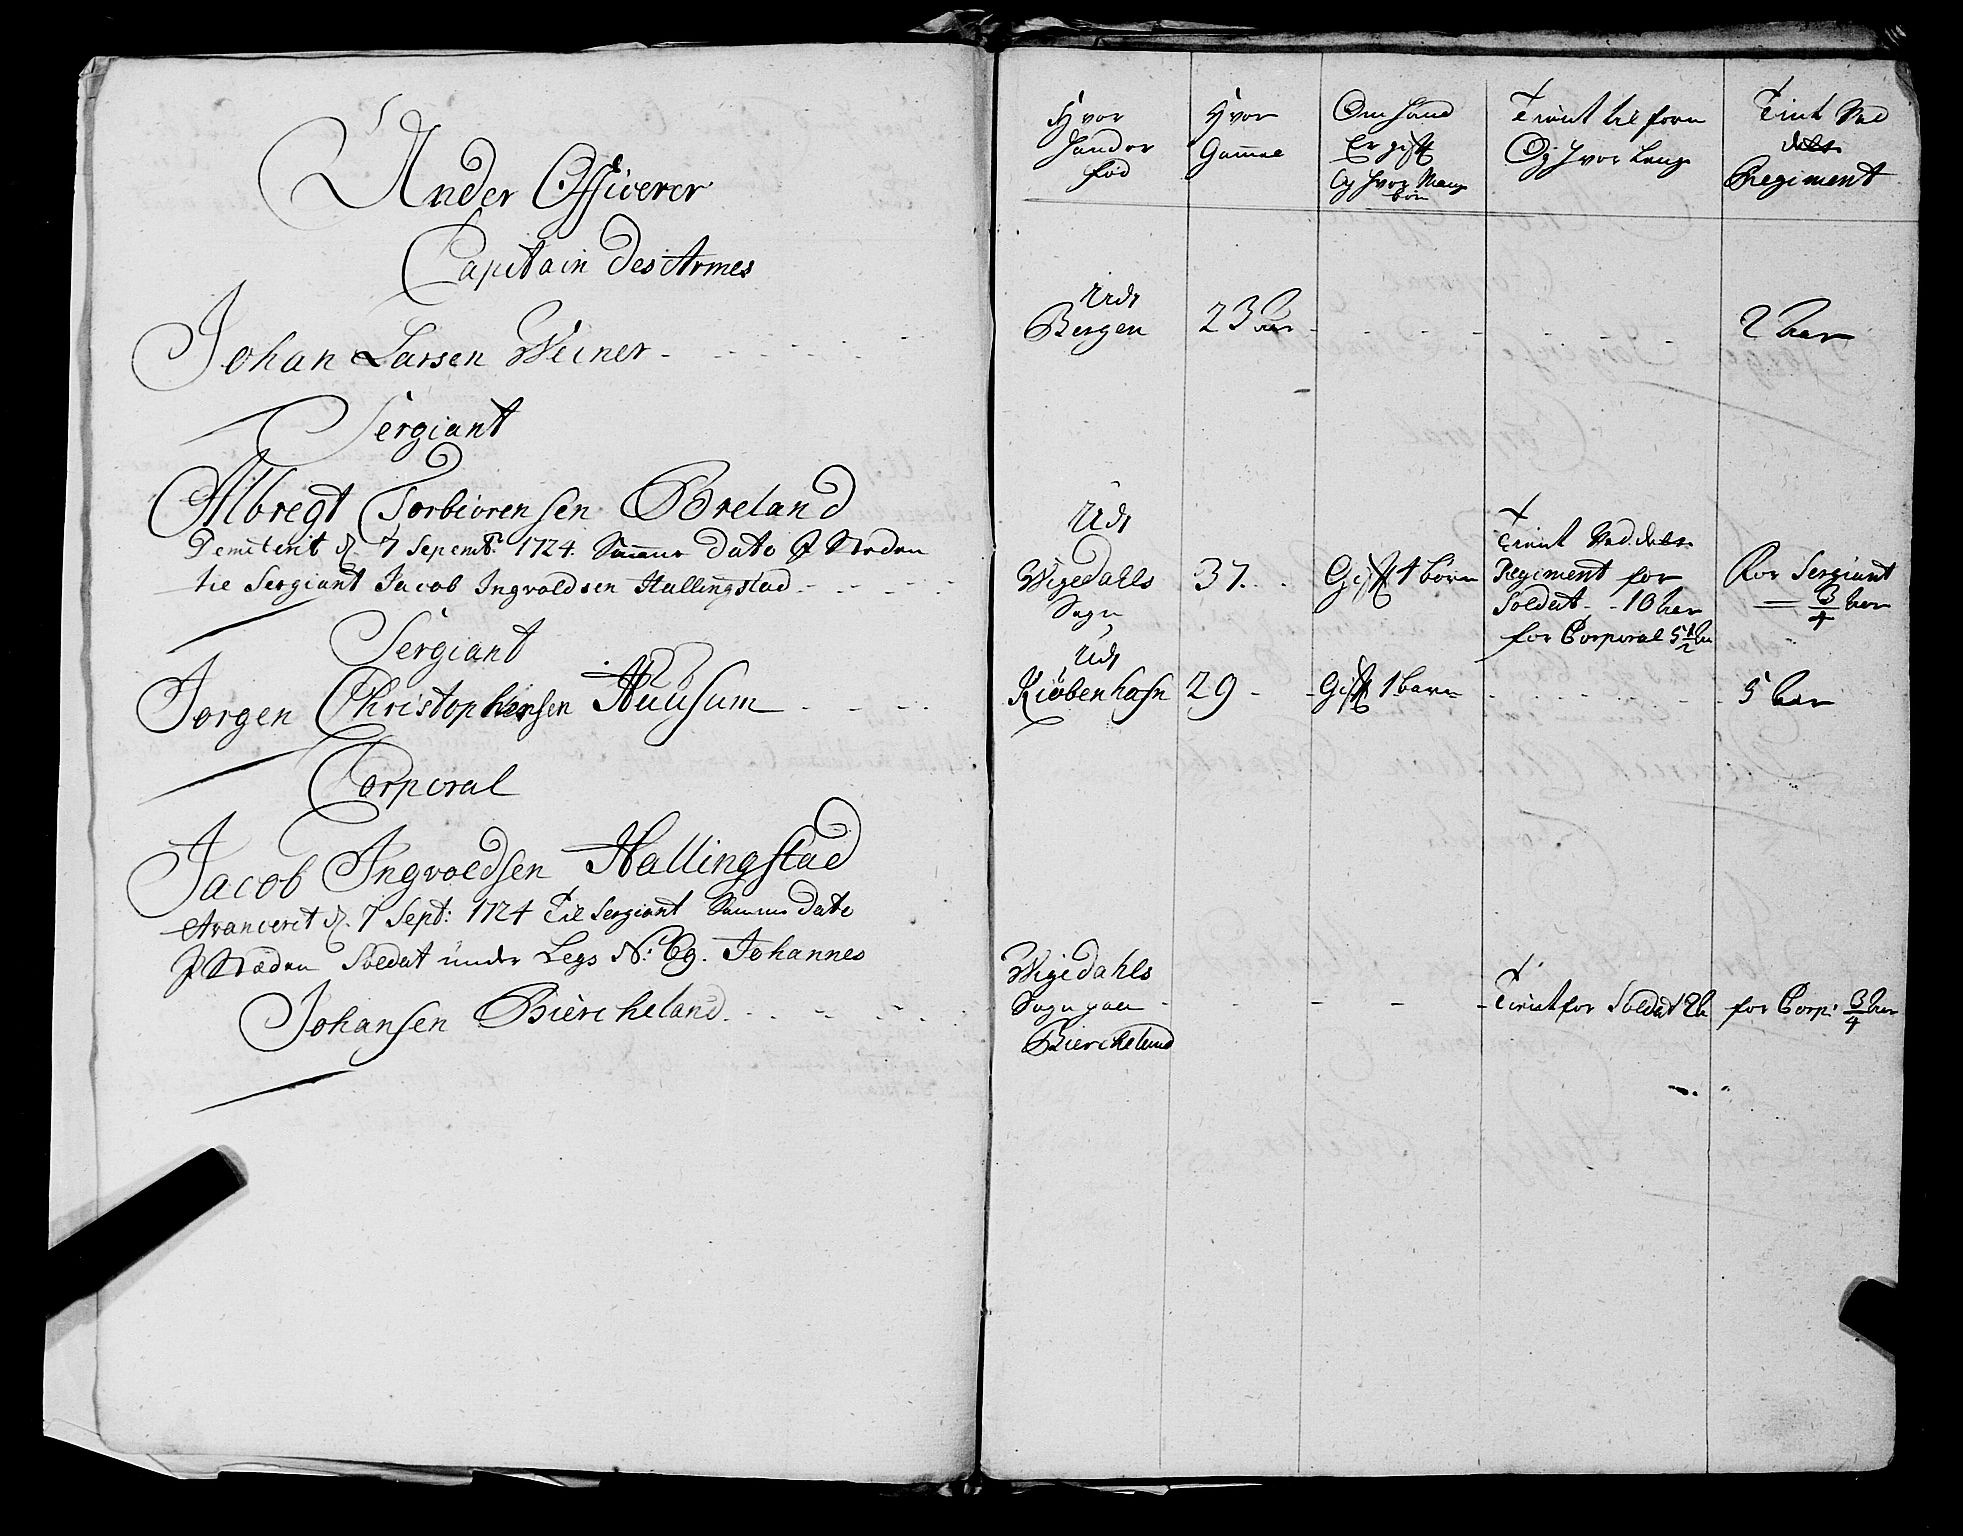 Under Officerer
Capitain des Armes
Johan Larsen Weiner
Sergiant
Albregt Torbiörensen Öreland
Demiterit d. 7 Sepemb. 1724. Samme dato J Steden
til Sergiant Jacob Ingvoldsen Hallingstad
Sergiant
Jorgen Christophersen Huusum
Corporal
Jacob Ingvoldsen Hallingstad
Avanceret d. 7 Sept: 1724 til Sergiant Samme dato
J Stæden Soldat under Legs N: 69. Johannes
Johansen Biercheland
Hvor
hand er
föd
Hvor
Gammel
Om hand
Er gift
Og hvor Mange
börn
Tient til forn
Og hvor Lenge
Tient Ved
dette
Regiment
Udi
Bergen
23 aar
2 aar
Udi
Wigedahls
Sogn
37
Gift 4 börn
Tient Ved dette
Regiment for
Soldat - 10 aar
for Corporal 5 1/2
For Sergiant
3/4 aar
Udi
Kiöbenhafn
29
Gift 1 barn
5 aar
Wigedahls
Sogn paa
Biercheland
Tient for Soldat
for Corp: 3/4 aar